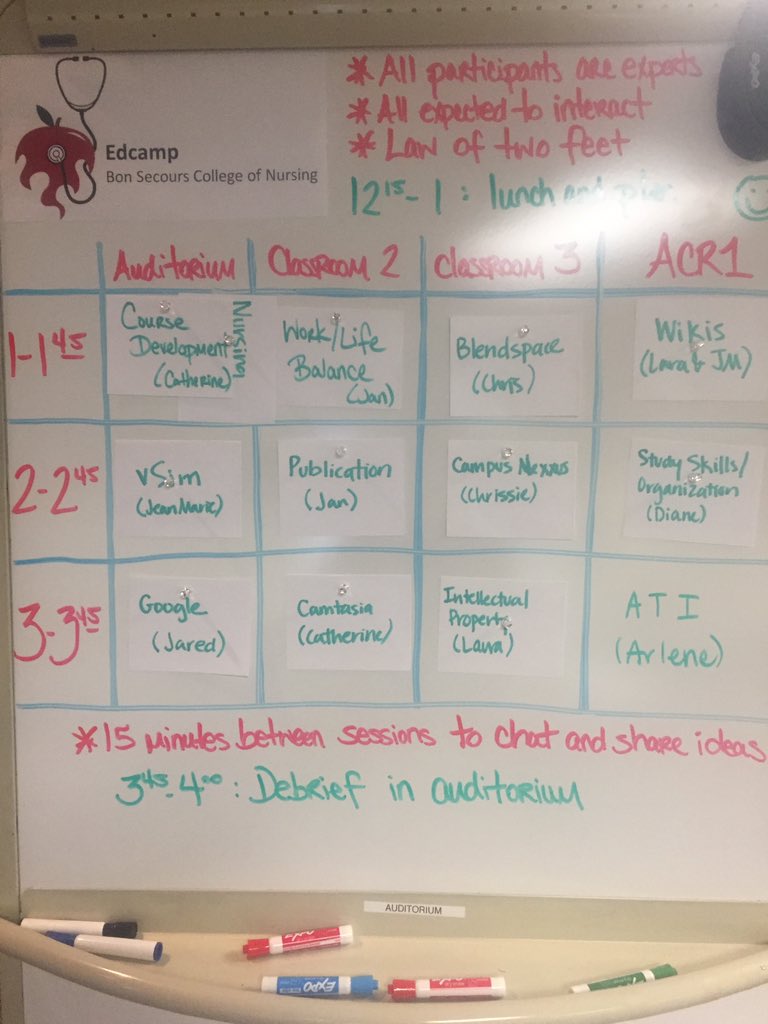 * All participants are experts
* All expected to interact
* Law of two feet
Edcamp
Bon Secours College of Nursing
12 15 - 1 : lunch and
Auditorium
Classroom 2
Classroom 3
ACR1
1-1 45
Course
Development
(Catherine)
Nursing
Work/Life
Balance
(Jan)
Blendspace
(Chris)
Wikis
(Lara & JM)
2-2 45
vSim
(Jean Marie)
Publication
(Jan)
Campus Nexus
(Chrissie)
Study Skills/
Organization
(Diane)
3-3 45
Google
(Jared)
Camtasia
(Catherine)
Intellectual
Property
(Laura)
ATI
(Arlene)
* 15 minutes between sessions to chat and share ideas
3 45 - 4 00 : Debrief in auditorium
AUDITORIUM
EXPO